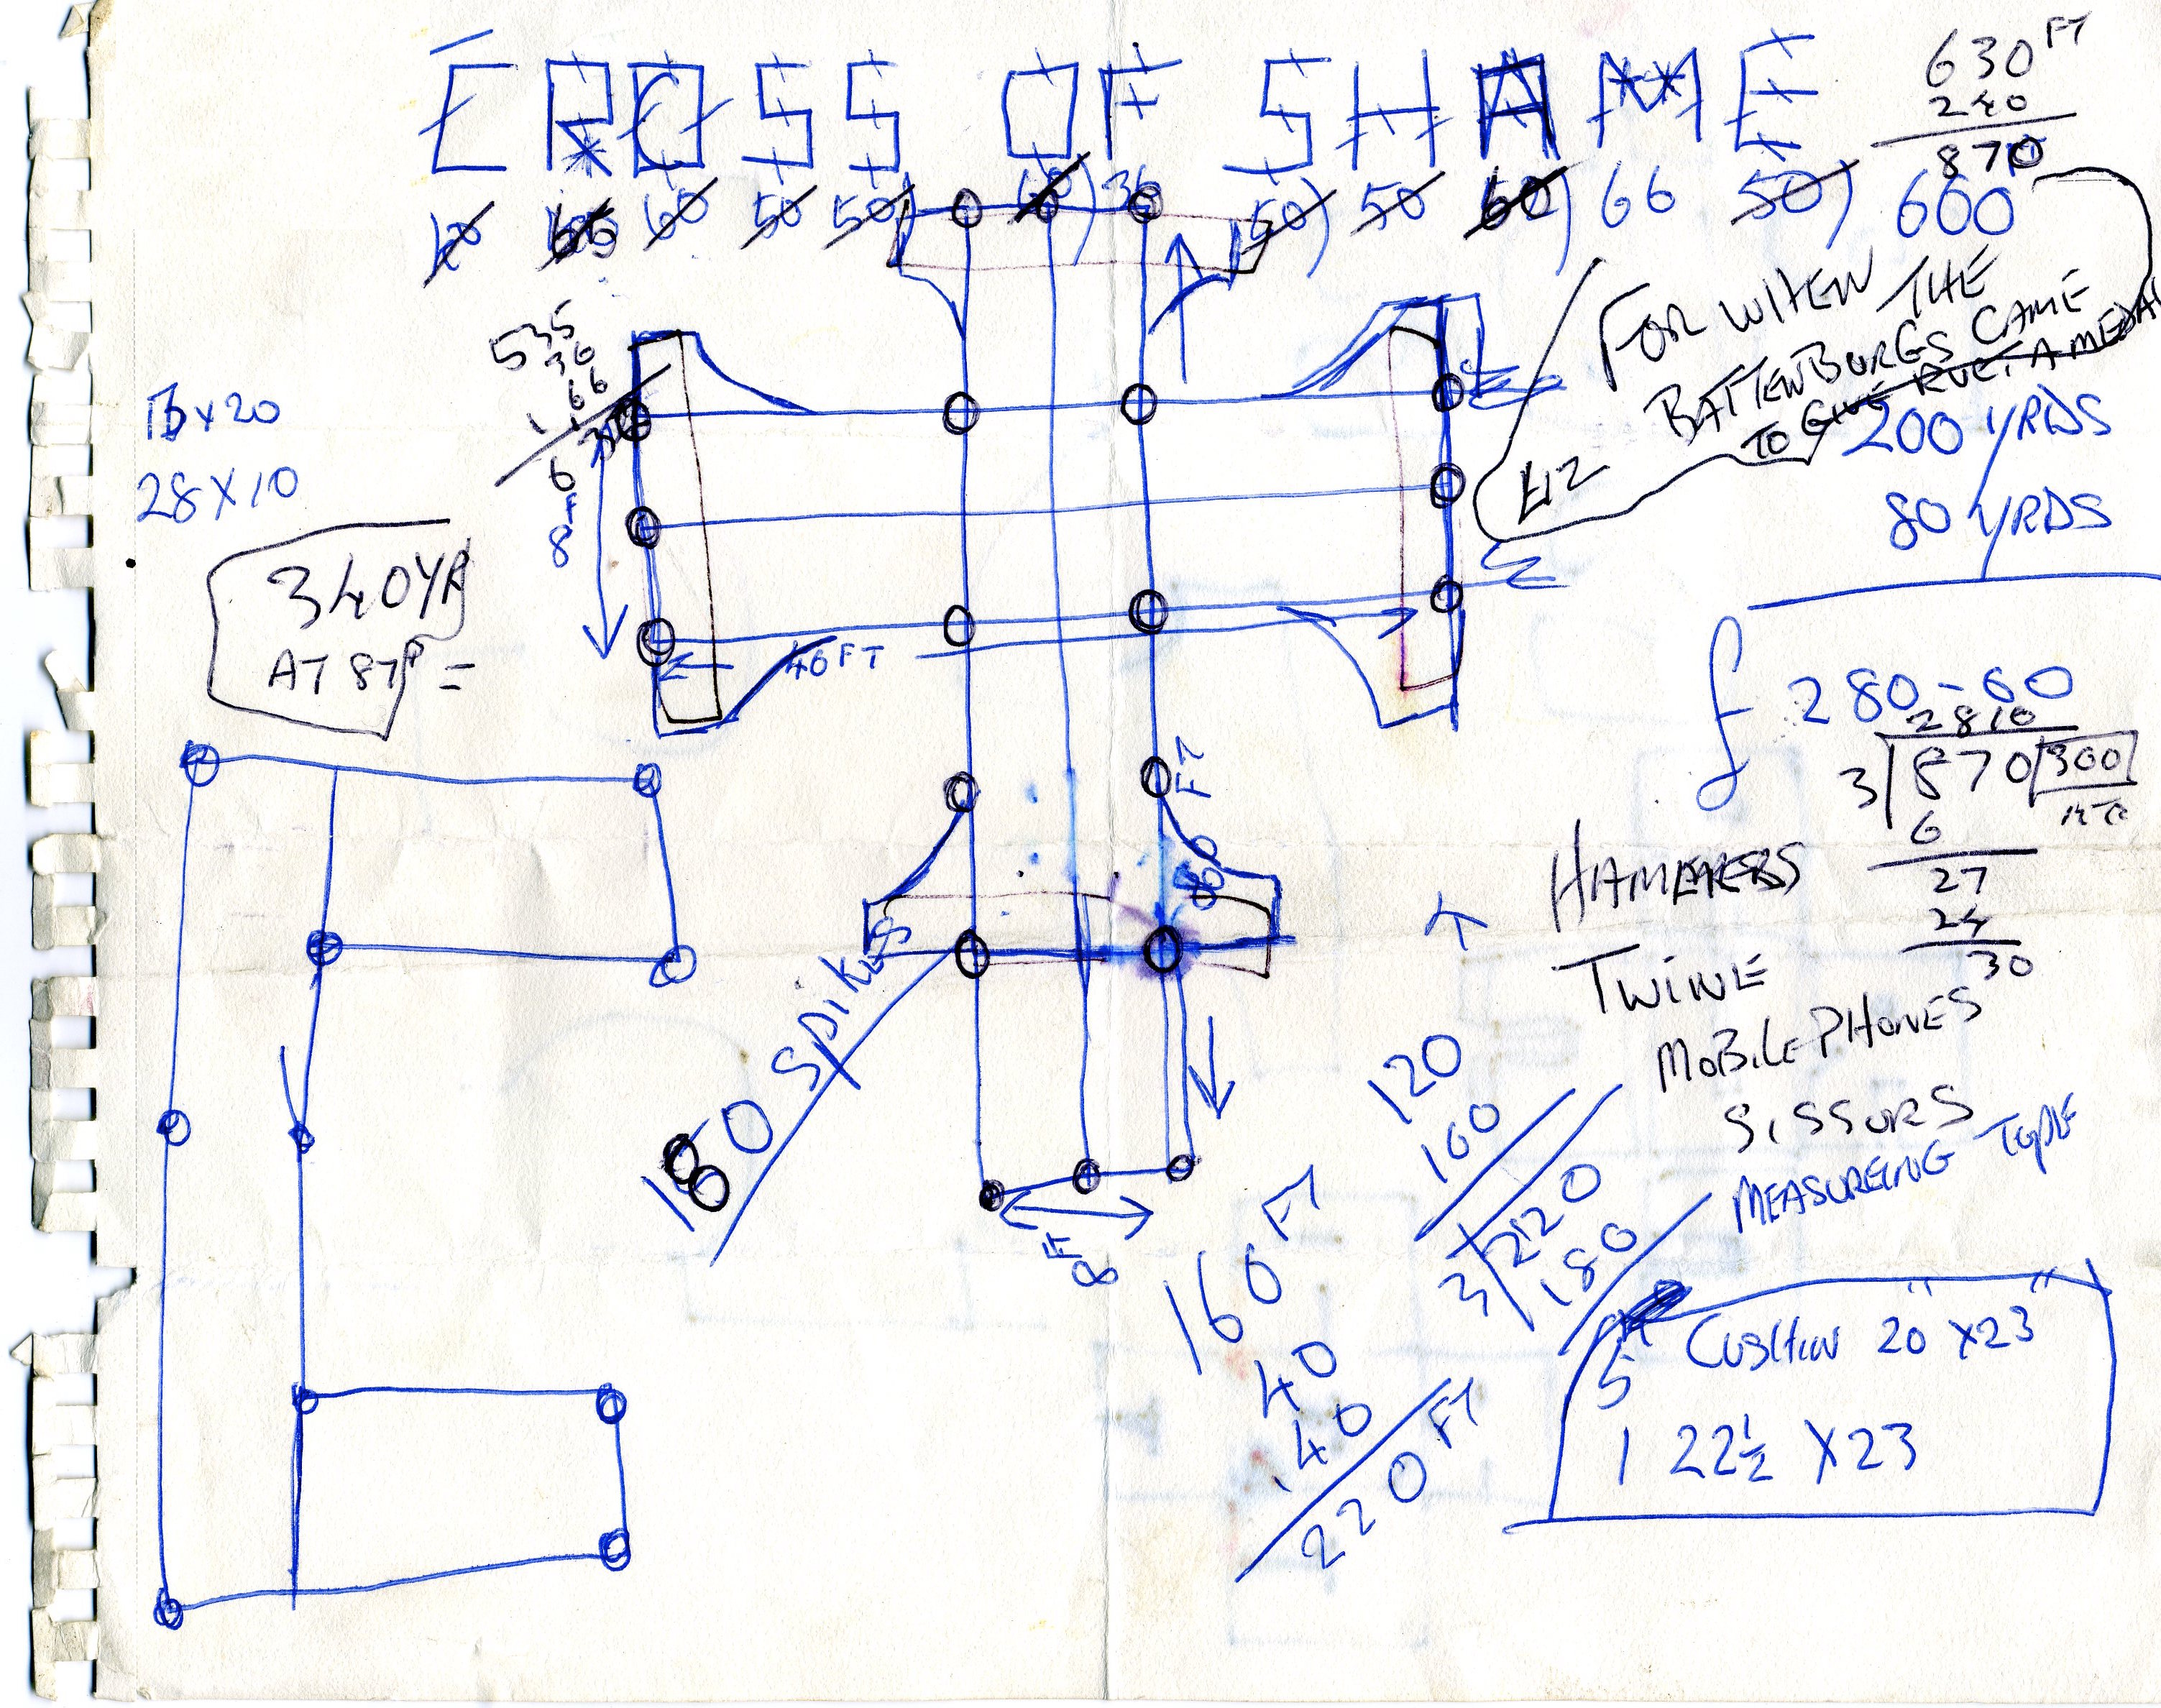 CROSS OF SHAME
60 66 60 50 50) 60) 36 50) 50 60) 66 50) 600
630 FT
240
870
535
36
66
FOR WHEN THE
BATTENBURGS CAME
TO GIVE RUC. A MEDAL
200 YRDS
80 YRDS
28 X 10
8 FT
340 YR
AT 87P =
40 FT
£ 280-60
2810
3 870 300
6
27
24
30
80 FT
HAMMERS
TWINE
MOBILE PHONES
SISSORS
MEASUREING TAPE
180 SPIKES
8 FT
120
100
3 220
180
160 FT
40
40
220 FT
5 CUSHION 20" X 23"
1 22½ X 23